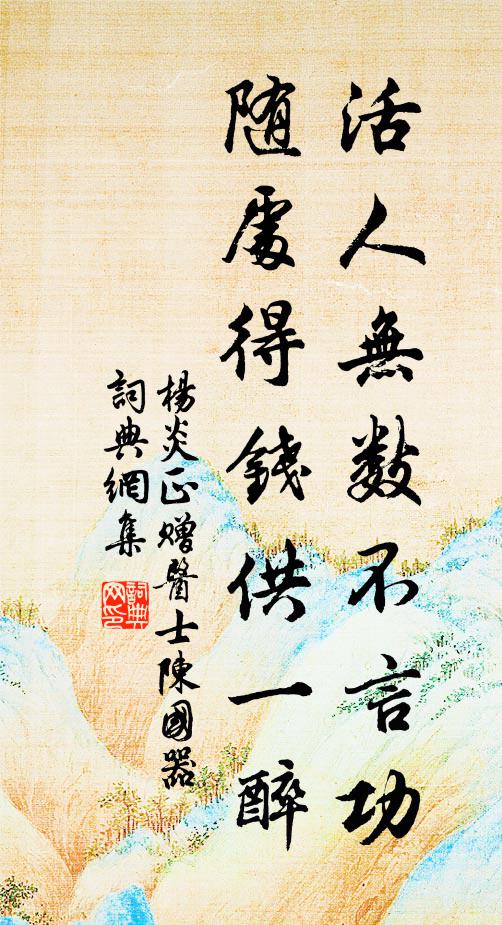 活人無數不言功
隨處得錢供一醉
楊炎正贈醫士陳國器
詞典網集
詞典
网印